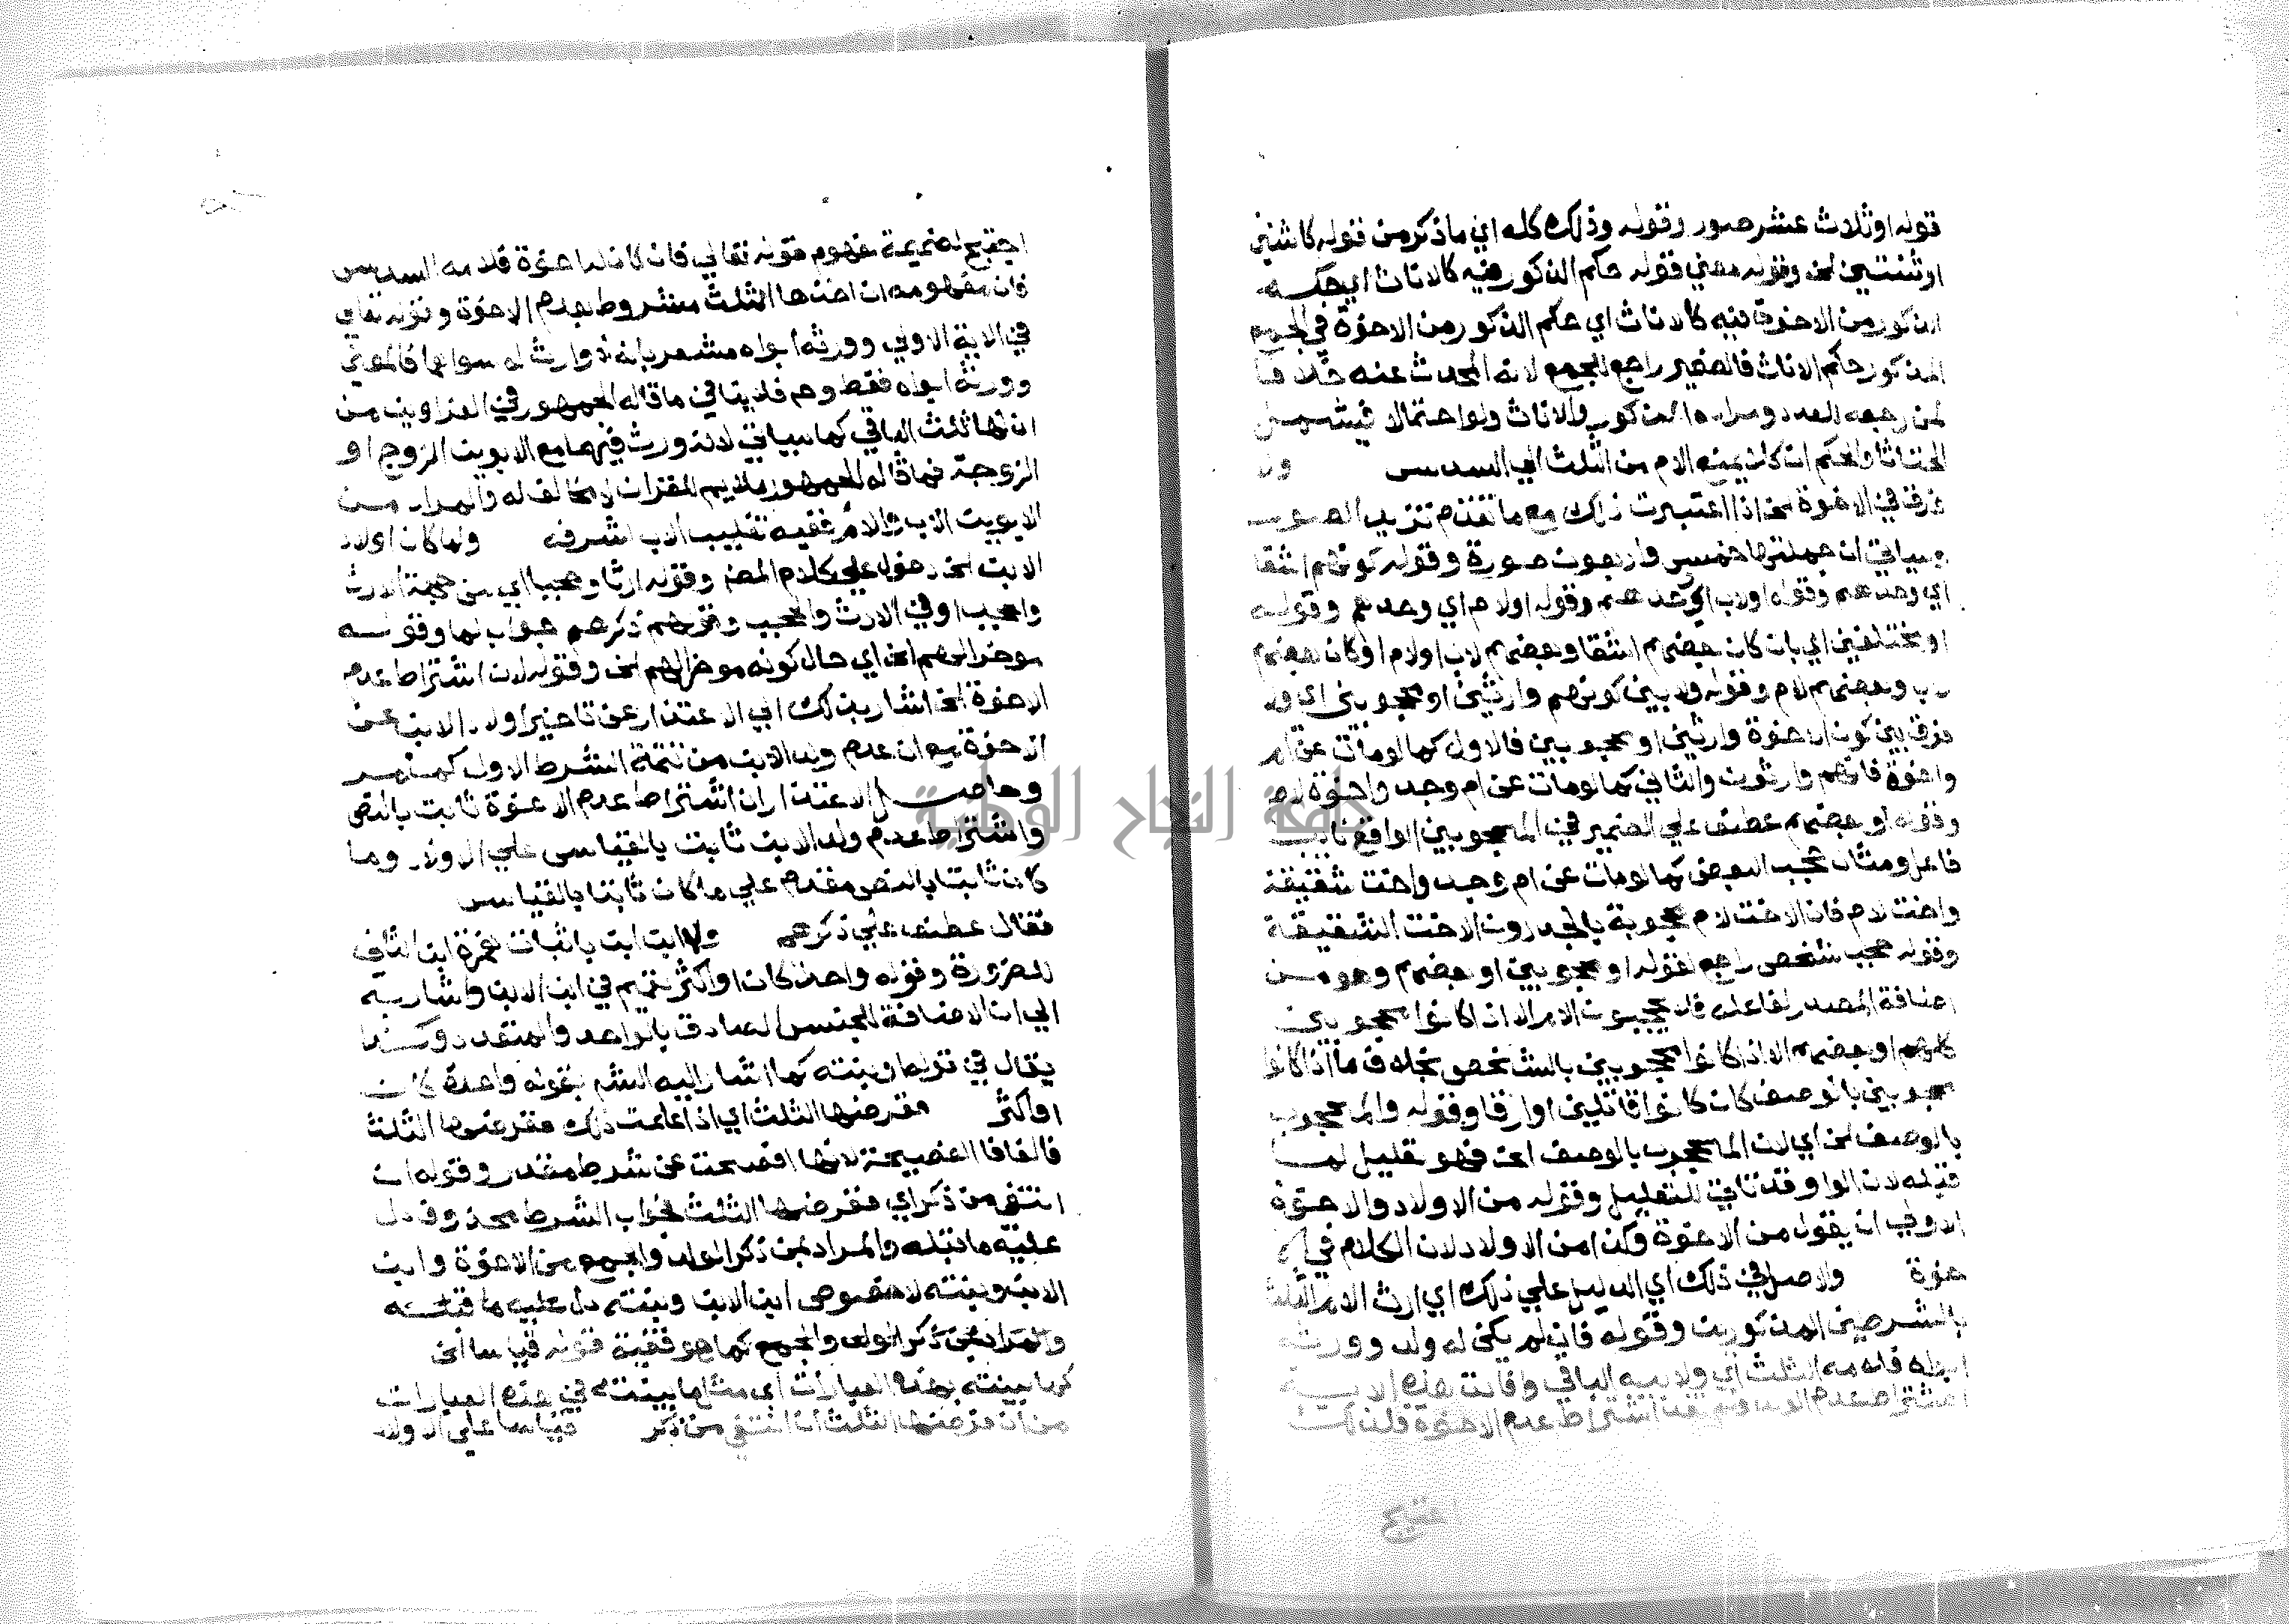 قوله او ثلاث عشر صور وقوله وذلك كله اي ما ذكر من قوله كاشنين
او ثنتين الخ وقوله معني قوله حكم الذكور فيه كالاناث اي حكم
الذكور من الاخوة فيه كالاناث اي حكم الذكور من الاخوة في الجمع
المذكور حكم الاناث فالضمير راجع للجمع لانه المحدث عنه خلافا
لمن رجعه للعدد ومراده الذكور والاناث ولو احتمالا فيشمل
الخناثا والحكم ان كان يمنع الام من الثلث الي السدس ولا
فرق في الاخوة الخ اذا اعتبرت ذلك مع ما تقدم تزيد الصور
وسياتي ان جملتها خمس واربعون صورة وقوله كونهم اشقا
اي وحدهم وقوله او لاب اي وحدهم وقوله او لام اي وحدهم وقوله
او مختلفين اي بان كان بعضهم اشقا وبعضهم لاب او لام او كان بعضهم
لاب وبعضهم لام وقوله ولا بين كونهم وارثين او محجوبين اي ولا
فرق بين كون الاخوة وارثين او محجوبين فالاول كما لو مات عن ام
واخوة فانهم وارثون والثاني كما لو مات عن ام وجد واخوة لام
وقوله او بعضهم عطف علي الضمير في المحجوبين الواقع نائب
فاعل ومثال حجب البعض كما لو مات عن ام وجد واخت شقيقة
واخت لام فان الاخت لام محجوبة بالجد دون الاخت الشقيقة
وقوله حجب شخص راجع لقوله او محجوبين او بعضهم وهو من
اضافة المصدر لفاعله فلا يحجبون الام الا اذا كانوا محجوبين
كلهم او بعضهم الا اذا كانوا محجوبين بالشخص بخلاف ما اذا كانوا
محجوبين بالوصف كان كانوا قاتلين او ارقا وقوله والمحجوب
بالوصف الخ اي لان المحجوب بالوصف الخ فهو تعليل لما
قبله لان الواو قد تاتي للتعليل وقوله من الاولاد والاخوة
الاولي ان يقول من الاخوة وكذا من الاولاد لان الكلام في الا
خوة والاصل في ذلك اي الدليل علي ذلك اي ارث الام الثلث
بالشرطين المذكورين وقوله فان لم يكن له ولد وورثه
ابواه فلامه الثلث اي ولابيه الباقي وافادت هذه الاية
اشتراط عدم الولد ولم يفد اشتراط عدم الاخوة فلذلك
احتيج
احتيج لضميمة مفهوم قوله تعالي فان كان له اخوة فلامه السدس
فان مفهومه ان اخذها الثلث مشروط بعدم الاخوة وقوله تعالي
في الاية الاولي وورثه ابواه مشعر بانه لا وارث له سواهما فالمعني
وورثه ابواه فقط وهم فلا ينافي ما قاله الجمهور في الغراوين من
ان لها ثلث الباقي كما سياتي لانه ورث فيهما مع الابوين الزوج او
الزوجة فما قاله الجمهور ملايم للقران لا مخالف له والمراد من
الابوين الاب والام ففيه تغليب الاب لشرفه ولما كان اولاد
الابن الخ دخول علي كلام المصنف وقوله ارثا وحجبا اي من جهة الارث
والحجب او في الارث والحجب وقوله ذكرهم جواب لما وقوله
موخرا لهم الخ اي حال كونه موخرا لهم الخ وقوله لان اشتراط عدم
الاخوة الخ اشار بذلك الي الاعتذار عن تاخير اولاد الابن عن
الاخوة مع ان عدم ولد الابن من تتمة الشرط الاول كما مر
وحاصل الاعتذار ان اشتراط عدم الاخوة ثابت بالنص
واشتراط عدم ولد الابن ثابت بالقياس علي الاولاد وما
كان ثابتا بالنص مقدم علي ما كان ثابتا بالقياس
فقال عطف علي ذكرهم ولا ابن ابن باثبات همزة ابن الثاني
للضرورة وقوله واحدا كان او اكثر تعميم في ابن الابن واشار به
الي ان الاضافة للجنس الصادق بالواحد والمتعدد وكذا
يقال في قوله او بنته كما اشار اليه الشم بقوله واحدة كانت
او اكثر ففرضها الثلث اي اذا علمت ذلك ففرضها الثلث
فالفا فا الفصيحة لانها افصحت عن شرط مقدر وقوله ان
انتفي من ذكر اي ففرضها الثلث فجواب الشرط محذوف دل
عليه ما قبله والمراد بمن ذكر الولد والجمع من الاخوة وابن
الابن وبنته لا خصوص ابن الابن وبنته دل عليه ما قبله
والمراد بمن ذكر الولد والجمع كما هو ففيه قوله قياسا الخ
كما بينته بهذه العبارات اي مثلما بينته في هذه العبارات
من ان فرضها الثلث اذا انتفي من ذكر قياسا علي الاولاد
جامعة النجاح الوطنية